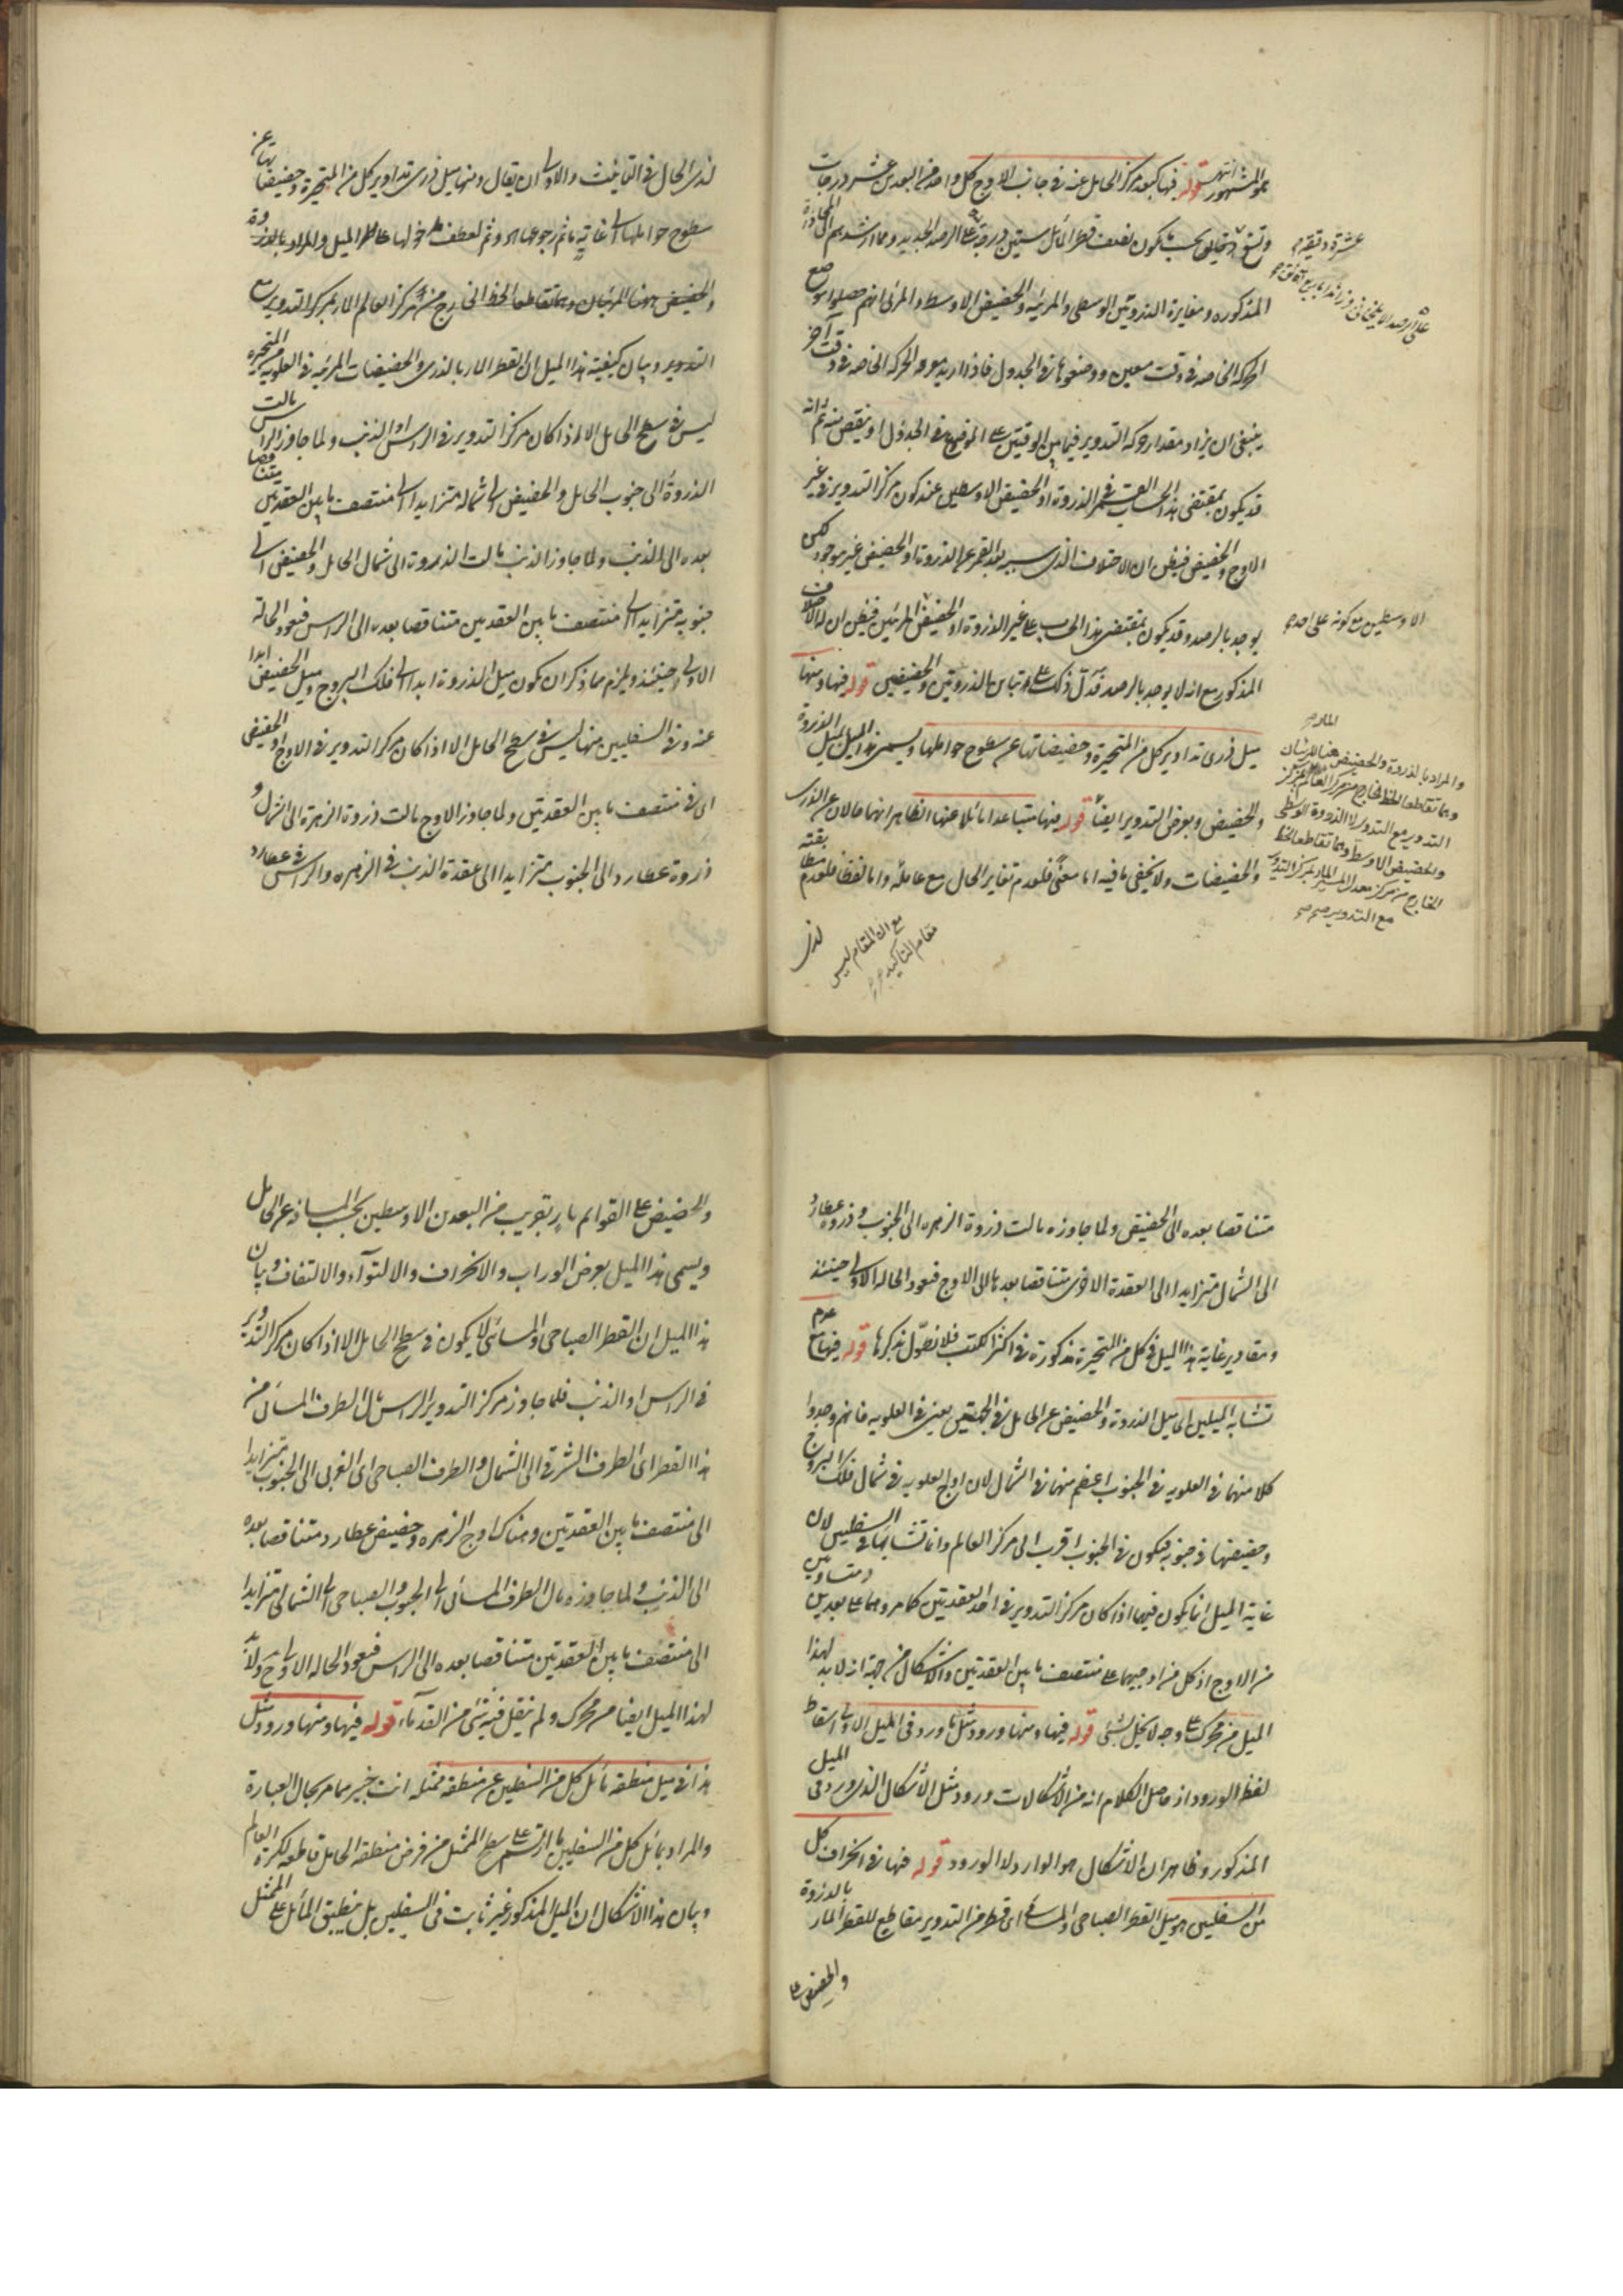 هو المشهور انتهى قوله فيها كبعد مركز الحامل عنه في جانب الاوج كل واحد من البعدين عشر درجات
وتسع دقايق بحيث يكون نصف قطر المائل ستين درجة على الرصد الجديد ومما ارشدهم الى المحاذاة
المذكورة ومغايرة الذروتين الوسطى والمرئية والحضيض الاوسط والمرئي انهم حصلوا موضع
الحركة الخاصة في وقت معين ووضعوها في الجدول فاذا اريد معرفة الحركة الخاصة في وقت آخر
ينبغي ان يزاد مقدار حركة التدوير فيما بين الوقتين على الموضوع في الجدول او ينقص منه ثم انه
قد يكون بمقتضى هذا الحساب القمر في الذروة او الحضيض الاوسطين عند كون مركز التدوير في غير
الاوج والحضيض فيظن ان الاختلاف الذي بسبب بعد القمر عن الذروة او الحضيض غير موجود لكن
يوجد بالرصد وقد يكون بمقتضى هذا الحساب على غير الذروة او الحضيض المرئيين فيظن ان الاختلاف
المذكور مع انه لا يوجد بالرصد فدل ذلك على تباين الذروتين والحضيضين قوله فيها ومنها
ميل ذرى تداوير كل من المتحيرة وحضيضاتها عن سطوح حواملها ويسمى هذا الميل بميل الذروة
والحضيض وبعرض التدوير ايضا قوله فيها متباعدا مائلا عنها الظاهر انهما حالان عن الذرى
والحضيضات ولا يخفى ما فيه اما معنى فلعدم تغاير الحال مع عامله واما لفظا فلعدم مطابقته
لذى
مع ان المقام ليس
مقام التأكيد
عشرة دقيقة
على الرصد الايلخاني
الاوسطين مع كونه على احدهما
والمراد بالذروة والحضيض هنا المرئيان
وهما تقاطعا الخط الخارج من مركز العالم المار بمركز
التدوير مع التدوير لا الذروة الوسطى
والحضيض الاوسط وهما تقاطعا الخط
الخارج من مركز معدل المسير المار بمركز التدوير
مع التدوير صح
لذى الحال في التانيث والاولى ان يقال ومنها ميل ذرى تداوير كل من المتحيرة وحضيضاتها عن
سطوح حواملها الى غاية ما ثم رجوعها اه وثم لعطف دخولها على الميل والمراد بالذروة
والحضيض ههنا المرئيان وهما تقاطعا الخط الخارج من مركز العالم المار بمركز التدوير مع
التدوير وبيان كيفية هذا الميل ان القطر المار بالذرى والحضيضات المرئية في العلوية من المتحيرة
ليس في سطح الحامل الا اذا كان مركز التدوير في الراس او الذنب ولما جاوز الراس مالت
الذروة الى جنوب الحامل والحضيض الى شماله متزايدا الى منتصف ما بين العقدتين متناقصا
بعده الى الذنب ولما جاوز الذنب مالت الذروة الى شمال الحامل والحضيض الى
جنوبه متزايدا الى منتصف ما بين العقدتين متناقصا بعده الى الراس فتعود الحالة
الاولى حينئذ ويلزم مما ذكر ان يكون ميل الذروة ابدا الى فلك البروج وميل الحضيض ابدا
عنه وفي السفليين منها ليس في سطح الحامل الا اذا كان مركز التدوير في الاوج او الحضيض
اي في منتصف ما بين العقدتين ولما جاوز الاوج مالت ذروة الزهرة الى الشمال و
ذروة عطارد الى الجنوب متزايدا الى عقدة الذنب في الزهرة والراس في عطارد
متناقصا بعده الى الحضيض ولما جاوزه مالت ذروة الزهرة الى الجنوب وذروة عطارد
الى الشمال متزايدا الى العقدة الاخرى متناقصا بعدها الى الاوج فتعود الحالة الاولى حينئذ
ومقادير غاية هذا الميل في كل من المتحيرة مذكورة في اكثر الكتب فلا نطول بذكرها قوله فيها مع عدم
تشابه الميلين اي ميل الذروة والحضيض عن الحامل في الجهتين يعني في العلوية فانهم وجدوا
كلا منهما في العلوية في الجنوب اعظم منهما في الشمال لان اوج العلوية في شمال فلك البروج
وحضيضها في جنوبه فيكون في الجنوب اقرب الى مركز العالم وانما تشابها في السفليين لان
غاية الميل انما يكون فيهما اذا كان مركز التدوير في احد العقدتين كما مر وهما على بعدين متساويين
من الاوج اذ كل من اوجيهما على منتصف ما بين العقدتين والاشكال من جهة انه لا بد لهذا
الميل من محرك على وجه لا يخل بشئ قوله فيها ومنها ورود مثل ما ورد في الميل الاولى اسقاط
لفظ الورود اذ حاصل الكلام انه من الاشكالات ورود مثل الاشكال الذي ورد في الميل
المذكور وظاهر ان الاشكال هو الوارد لا الورود قوله فيها في انحراف كل
من السفليين هو ميل القطر الصباحي والمسائي اي قطر من التدوير مقاطع للقطر المار بالذروة
والحضيض على
والحضيض على القوائم مار بقريب من البعدين الاوسطين بحسب المسافة عن الحامل
ويسمى هذا الميل بعرض الوراب والانحراف والالتواء والالتفاف وبيان
هذا الميل ان القطر الصباحي والمسائي لا يكون في سطح الحامل الا اذا كان مركز التدوير
في الراس او الذنب فلما جاوز مركز التدوير الراس مال الطرف المسائي من
هذا القطر اي الطرف الشرقي الى الشمال والطرف الصباحي اي الغربي الى الجنوب متزايدا
الى منتصف ما بين العقدتين وهناك اوج الزهرة وحضيض عطارد متناقصا بعده
الى الذنب ولما جاوزه مال الطرف المسائي الى الجنوب والصباحي الى الشمال متزايدا
الى منتصف ما بين العقدتين متناقصا بعده الى الراس فتعود الحالة الاولى ح ولا بد
لهذا الميل ايضا من محرك ولم ينقل فيه شئ من القدماء قوله فيها ومنها ورود مثل
هذا في ميل منطقة مائل كل من السفليين عن منطقة ممثله انت خبير مما مر بحال العبارة
والمراد بمائل كل من السفليين ما ارتسم على سطح الممثل من فرض منطقة الحامل قاطعة لكرة العالم
وبيان هذا الاشكال ان الميل المذكور غير ثابت في السفليين بل ينطبق المائل على الممثل